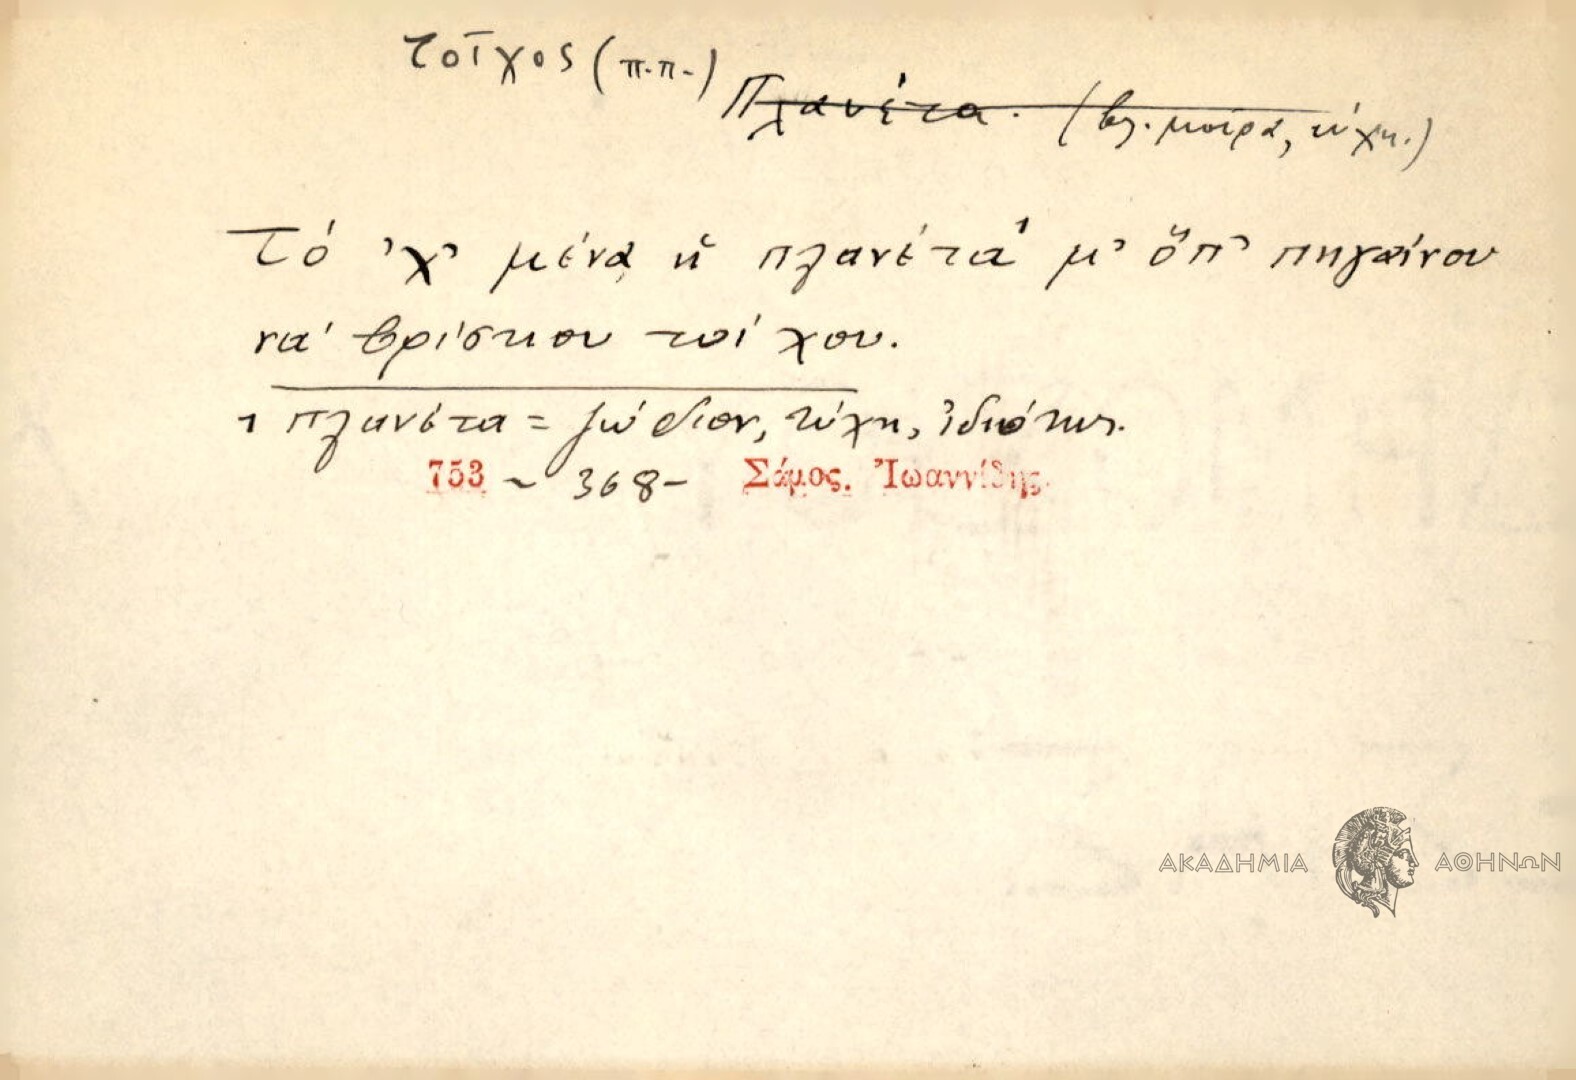 τοῖχος (π.π.)
Πλανέτα. (βλ. μοῖρα, τύχη.)
Τό 'χ' μένα ἡ πλανέτα¹ μ' ὅπ' πηγαίνου
νά βρίσκου τοίχου.
1 πλανέτα = ζώδιον, τύχη, ἰδιότης.
753 ~ 368 - Σάμος. Ἰωαννίδης.
ΑΚΑΔΗΜΙΑ ΑΘΗΝΩΝ